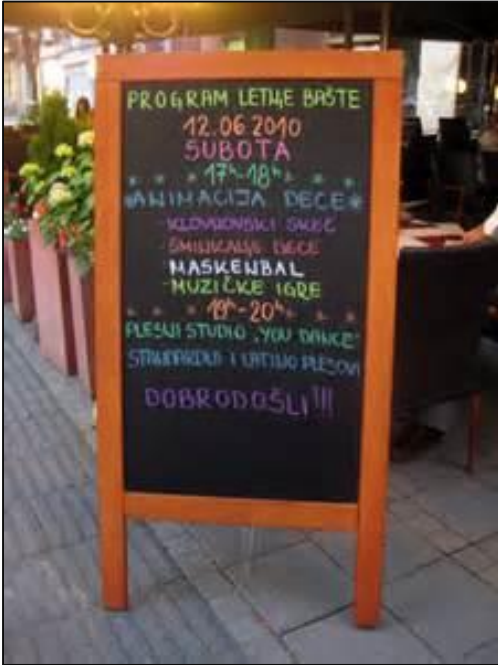 PROGRAM LETNJE BAŠTE
12.06 2010
SUBOTA
* * 17h-18h * * *
*ANIMACIJA DECE*
-KLOVNOVSKI SKEČ
-ŠMINKANJE DECE
MASKENBAL
-MUZIČKE IGRE
* * * 19h-20h * * *
PLESNI STUDIO "YOU DANCE"
STANDARDNI I LATINO PLESOVI
DOBRODOŠLI!!!